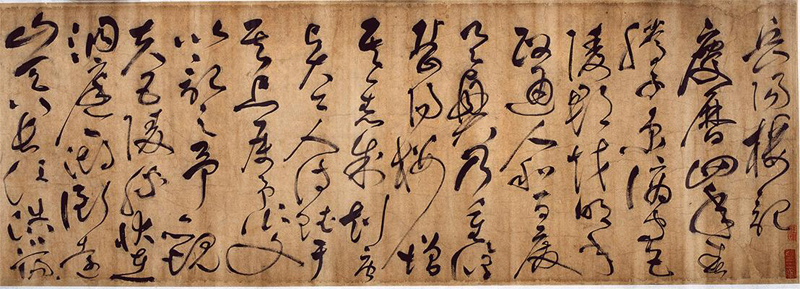 岳陽樓記
慶曆四年春
滕子京謫守巴
陵郡越明年
政通人和百廢
具興乃重修
岳陽樓增
其舊制刻唐
賢今人詩賦于
其上屬予作文
以記之予觀
夫巴陵勝狀在
洞庭湖銜遠
山吞長江